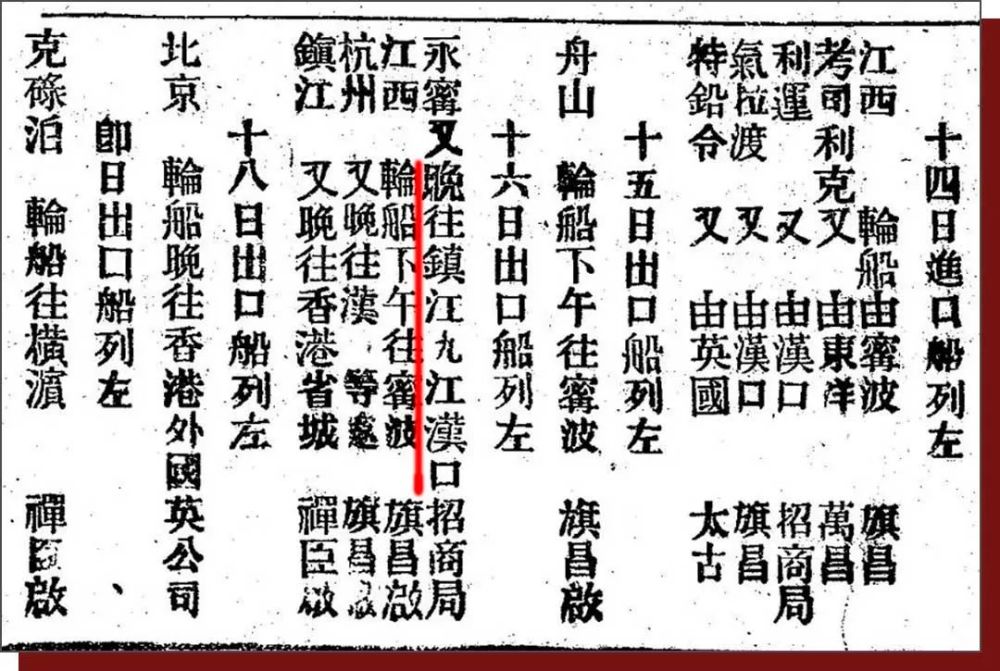 十四日進口船列左
江西 輪船由甯波 旗昌
考司利克 又 由東洋 萬昌
利運 又 由漢口 招商局
氣拉渡 又 由漢口 旗昌
特鉛令 又 由英國 太古
十五日出口船列左
舟山 輪船下午往甯波 旗昌啟
十六日出口船列左
永甯 又晚往鎮江九江漢口 招商局
江西 輪船下午往甯波 旗昌啟
杭州 又晚往漢 等處 旗昌啟
鎮江 又晚往香港省城 禪臣啟
十八日出口船列左
北京 輪船晚往香港外國英公司
即日出口船列左、
克碌泊 輪船往橫濵 禪臣啟